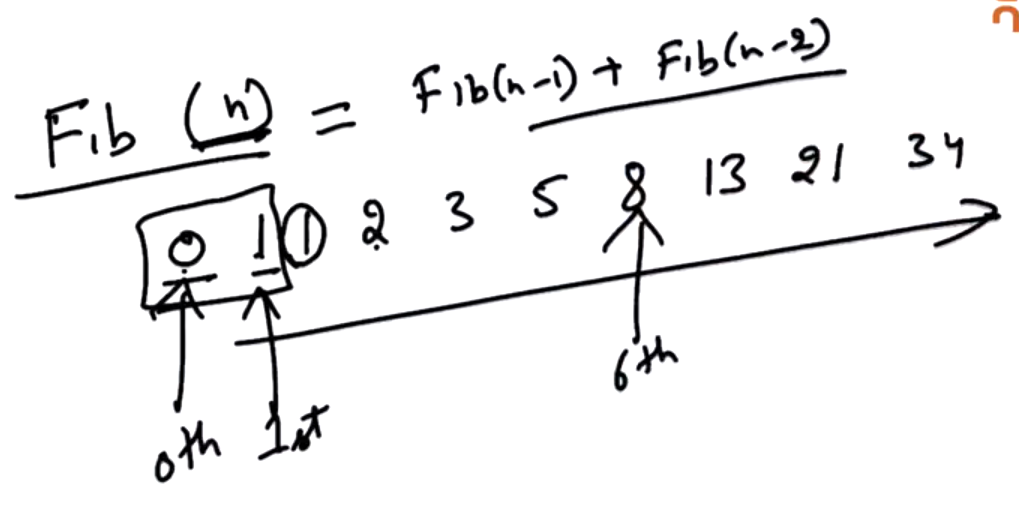 Fib (n) = Fib(n-1) + Fib(n-2)
0 1 1 2 3 5 8 13 21 34
0th 1st 6th